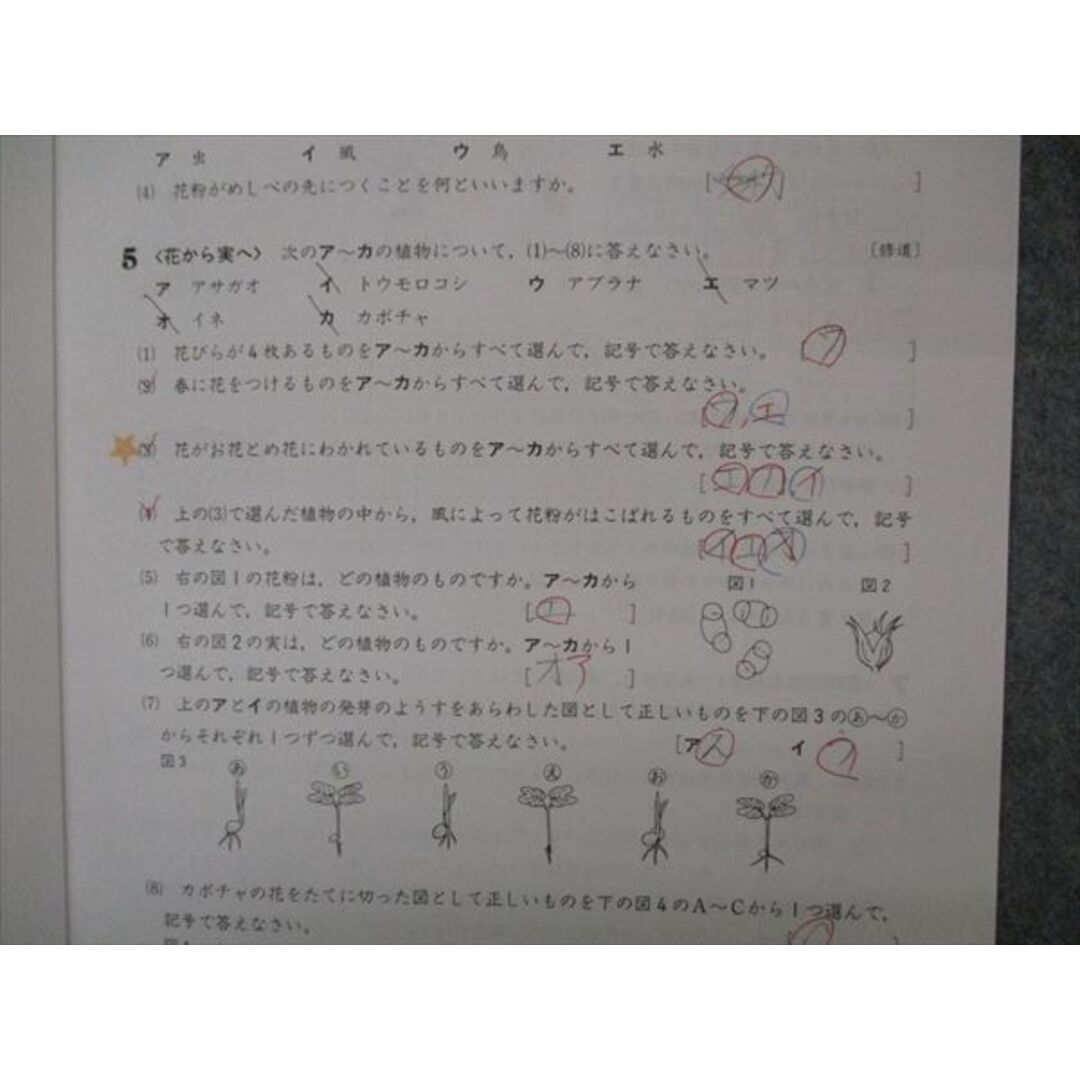 ア 虫 イ 風 ウ 鳥 エ 水
(4) 花粉がめしべの先につくことを何といいますか。 [ ]
5 〈花から実へ〉 次のア〜カの植物について，(1)〜(8)に答えなさい。 〔修道〕
ア アサガオ イ トウモロコシ ウ アブラナ エ マツ
オ イネ カ カボチャ
(1) 花びらが4枚あるものをア〜カからすべて選んで，記号で答えなさい。 [ウ ]
春に花をつけるものをア〜カからすべて選んで，記号で答えなさい。
[ウ, エ ]
(3) 花がお花とめ花にわかれているものをア〜カからすべて選んで，記号で答えなさい。
[ ]
(4) 上の(3)で選んだ植物の中から，風によって花粉がはこばれるものをすべて選んで，記号
で答えなさい。 [ ]
(5) 右の図1の花粉は，どの植物のものですか。ア〜カから
1つ選んで，記号で答えなさい。 [エ ]
図1 図2
(6) 右の図2の実は，どの植物のものですか。ア〜カから1
つ選んで，記号で答えなさい。 [オア ]
(7) 上のアとイの植物の発芽のようすをあらわした図として正しいものを下の図3のあ〜か
からそれぞれ1つずつ選んで，記号で答えなさい。 [ア イ ]
図3
あ い う え お か
(8) カボチャの花をたてに切った図として正しいものを下の図4のA〜Cから1つ選んで，
記号で答えなさい。 [ ]